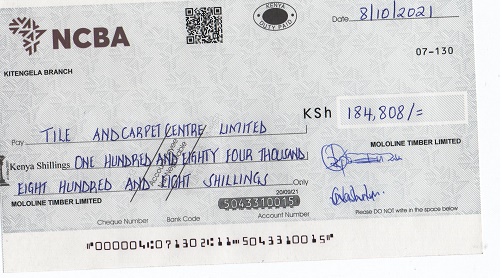 NCBA
KENYA
DUTY PAID
Date 8/10/2021
07-130
KITENGELA BRANCH
KSh 184,808/=
Pay TILE AND CARPET CENTRE LIMITED
MOLOLINE TIMBER LIMITED
Kenya Shillings ONE HUNDRED AND EIGHTY FOUR THOUSAND
EIGHT HUNDRED AND EIGHT SHILLINGS Only
MOLOLINE TIMBER LIMITED
20/09/21
5043310015
Cheque Number Bank Code Account Number
Please DO NOT write in the space below
⑈000004⑆071302⑆11⑈5043310015⑈